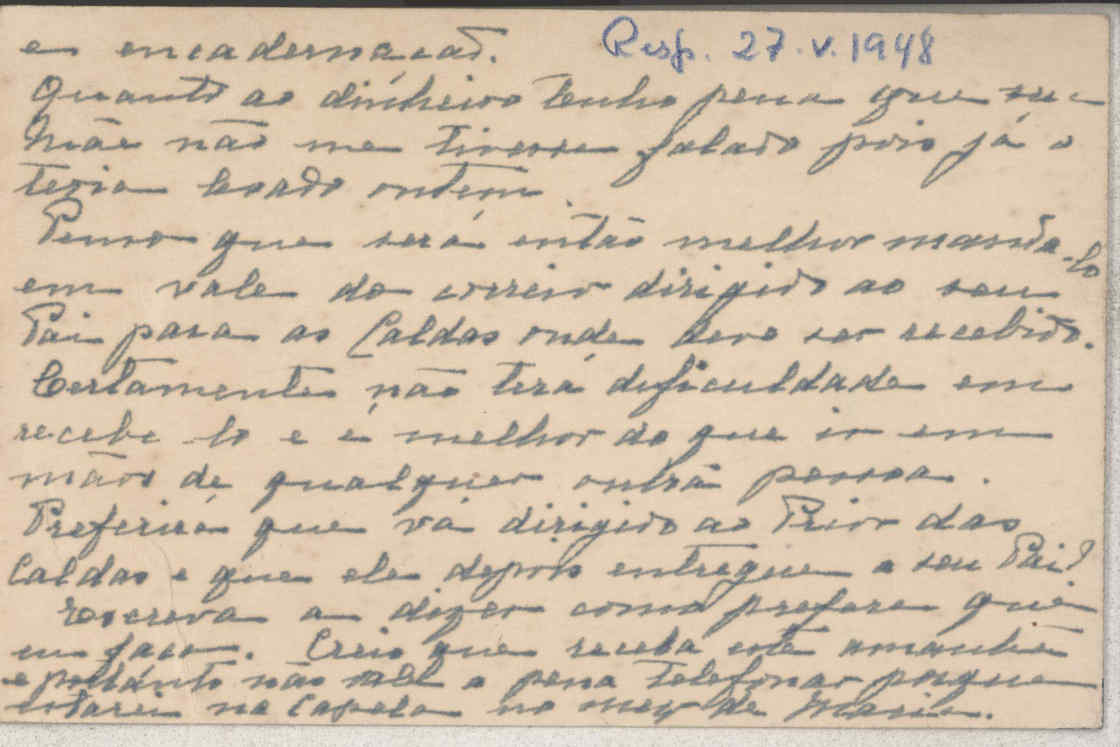 e encadernação.
Resp. 27.V.1948
Quanto ao dinheiro tenho pena que sua
Mãe não me tivesse falado pois já o
teria levado ontem.
Penso que será então melhor manda-lo
em vale do correio dirigido ao seu
Pai para as Caldas onde deve ser recebido.
Certamente não terá dificuldade em
recebe-lo e é melhor do que ir em
mãos de qualquer outra pessoa.
Preferirá que vá dirigido ao Prior das
Caldas e que ele depois entregue a seu Pai?
Escreva a dizer como prefere que
eu faço. Creio que receba este amanhã
e portanto não vale a pena telefonar porque
estarei na Capela no mez de Maria.